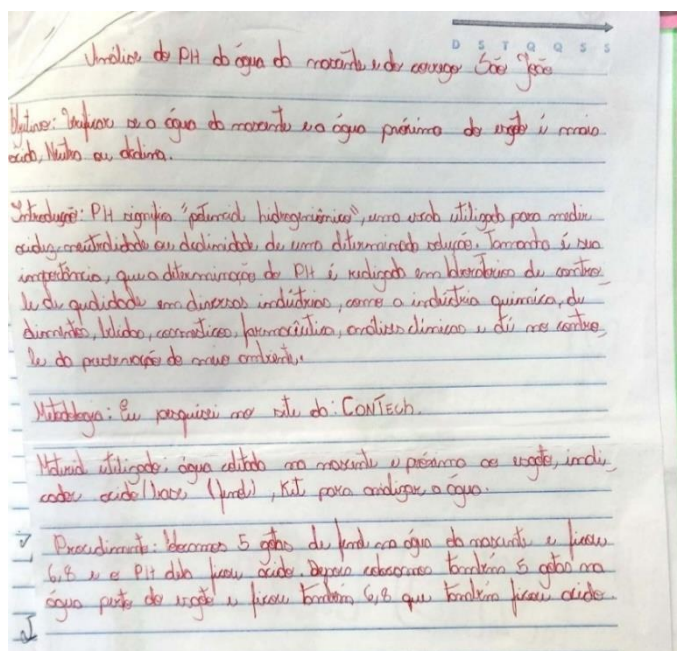 D S T Q Q S S
Análise do PH da água da nascente e do corrego São João
Objetivo: Verificar se a água da nascente e a água próximo do esgoto é mais
acida, Neutra ou alcalina.
Introdução: PH significa "potencial hidrogeniônico", uma escala utilizada para medir
acidez, neutralidade ou alcalinidade, de uma determinada solução. Tamanha é sua
importância, que a determinação do PH é realizada em laboratórios de contro_
le de qualidade em diversas indústrias, como a indústria química, de
alimentos, bebidas, cosmeticos, farmacêutica, análises clinicas e até no contro_
le da preservação do meio ambiente.
Metodologia: Eu pesquisei no site da: CONTECH.
Material utilizado: água coletada na nascente e próximo ao esgoto, indi_
cador acido/base (fenol), Kit para analizar a água.
Procedimento: 5 gotas de fenol na água da nascente e ficou
6,8 e o PH dela ficou ácido. Depois colocamos também 5 gotas na
água perto do esgoto e ficou também 6,8 que também ficou acido.